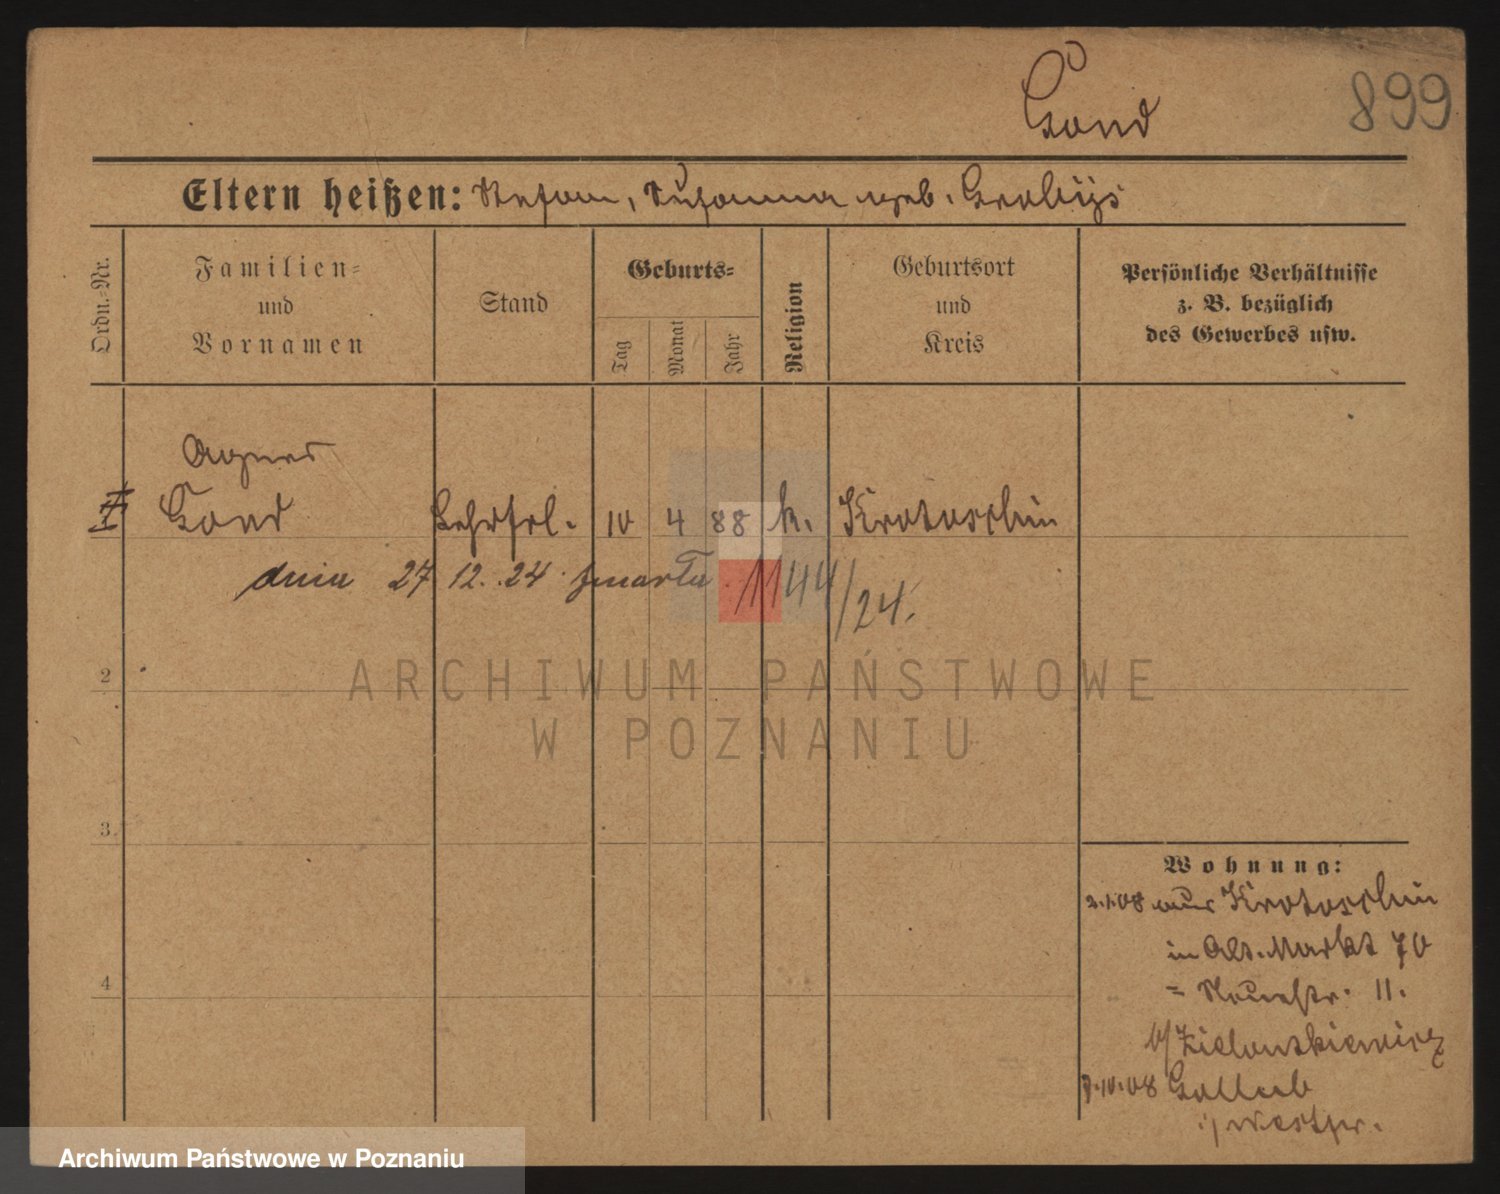 Gond
899
Eltern heißen: Stefan, Susanna geb.
Ordn.-Nr.
Familien-
und
Vornamen
Stand
Geburts-
Tag
Monat
Jahr
Religion
Geburtsort
und
Kreis
Persönliche Verhältnisse
z. B. bezüglich
des Gewerbes usw.
Agnes
Gond Lehrfrl. 10 4 88 k. Krotoschin
dnia 27 12. 24 zmarła. 1144/24.
2
ARCHIWUM PAŃSTWOWE
W POZNANIU
3
Wohnung:
2.1.08 aus Krotoschin
in Alt. Markt 70
= Neuestr. 11.
b/
4
7.10.08 Gollub
i/ Westpr.
Archiwum Państwowe w Poznaniu